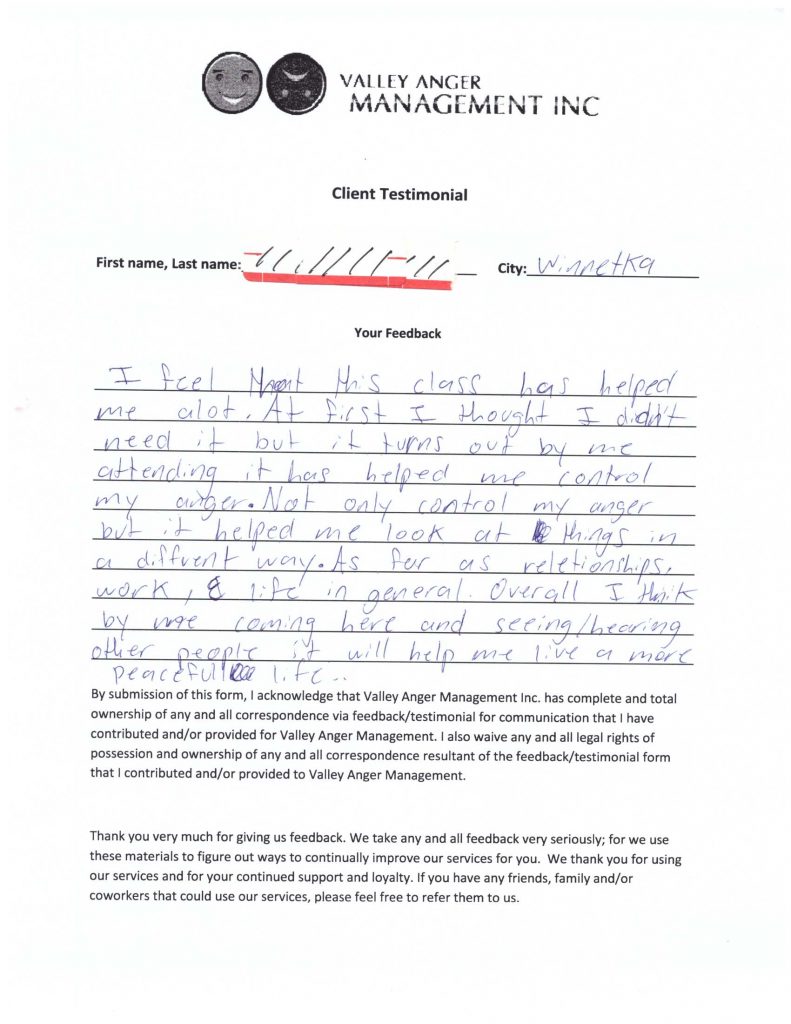 VALLEY ANGER
MANAGEMENT INC
Client Testimonial
First name, Last name: City: Winnetka
Your Feedback
I feel that this class has helped
me alot. At first I thought I didn't
need it but it turns out by me
attending it has helped me control
my anger. Not only control my anger
but it helped me look at things in
a diffrent way. As far as reletionships,
work, & life in general. Overall I thnik
by me coming here and seeing/hearing
other people it will help me live a more
peaceful life..
By submission of this form, I acknowledge that Valley Anger Management Inc. has complete and total
ownership of any and all correspondence via feedback/testimonial for communication that I have
contributed and/or provided for Valley Anger Management. I also waive any and all legal rights of
possession and ownership of any and all correspondence resultant of the feedback/testimonial form
that I contributed and/or provided to Valley Anger Management.
Thank you very much for giving us feedback. We take any and all feedback very seriously; for we use
these materials to figure out ways to continually improve our services for you. We thank you for using
our services and for your continued support and loyalty. If you have any friends, family and/or
coworkers that could use our services, please feel free to refer them to us.